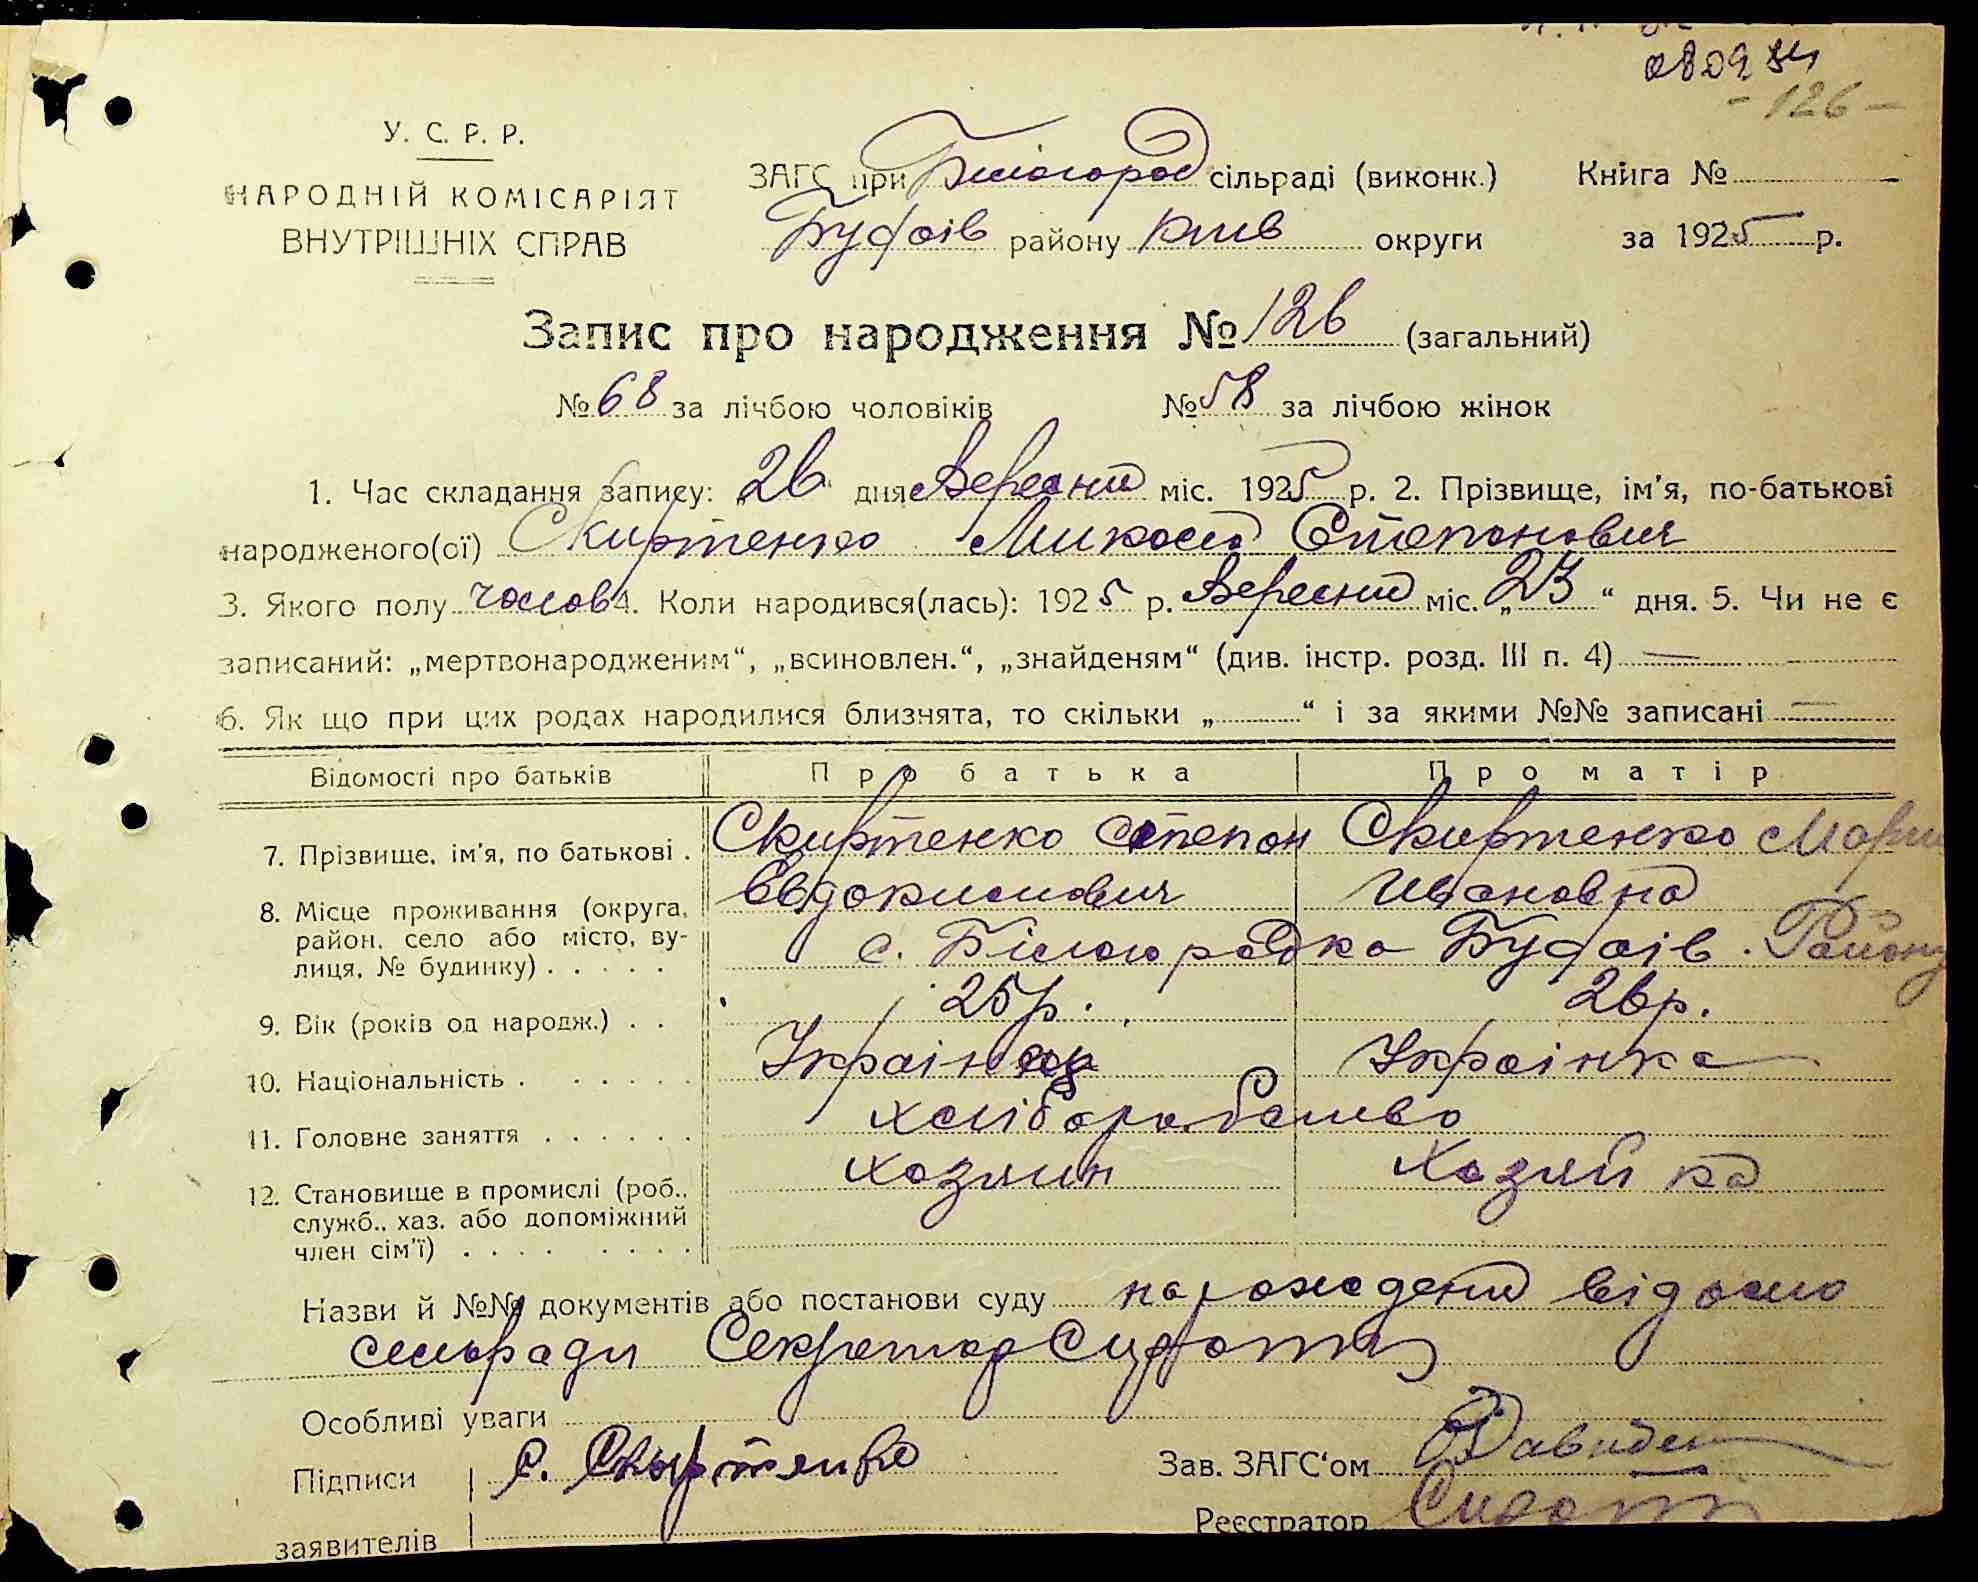 080934
- 126 -
У. С. Р. Р.
НАРОДНІЙ КОМІСАРІЯТ
ВНУТРІШНІХ СПРАВ
ЗАГС при Білогород сільраді (виконк.) Книга №
Будаїв району Київ округи за 1925 р.
Запис про народження № 126 (загальний)
№ 68 за лічбою чоловіків № 58 за лічбою жінок
1. Час складання запису: „26“ дня Вересня міс. 1925 р. 2. Прізвище, ім'я, по-батькові
народженого(ої) Скиртенко Микола Степанович
3. Якого полу чолов 4. Коли народився(лась): 1925 р. Вересня міс. „23“ дня. 5. Чи не є
записаний: „мертвонародженим“, „всиновлен.“, „знайденям“ (див. інстр. розд. III п. 4) —
6. Як що при цих родах народилися близнята, то скільки „ “ і за якими №№ записані —
Відомості про батьків Про батька Про матір
7. Прізвище, ім'я, по батькові . Скиртенко Степан Скиртенко Мария
Євдокимович Ивановна
8. Місце проживання (округа,
район, село або місто, ву-
лиця, № будинку) . . . . . с. Білогородка Будаїв. Району
9. Вік (років од народж.) . . 25 р. 26 р.
10. Національність . . . . . . Українец Українка
11. Головне заняття . . . . . . хліборобство
12. Становище в промислі (роб., хозяин хозяйка
служб., хаз. або допоміжний
член сім'ї) . . . . . . . .
Назви й №№ документів або постанови суду нарождения відомо
сельради Секретар Сирота
Особливі уваги
Підписи С. Скыртенко Зав. ЗАГС'ом Давиден
заявителів Реєстратор Сирота